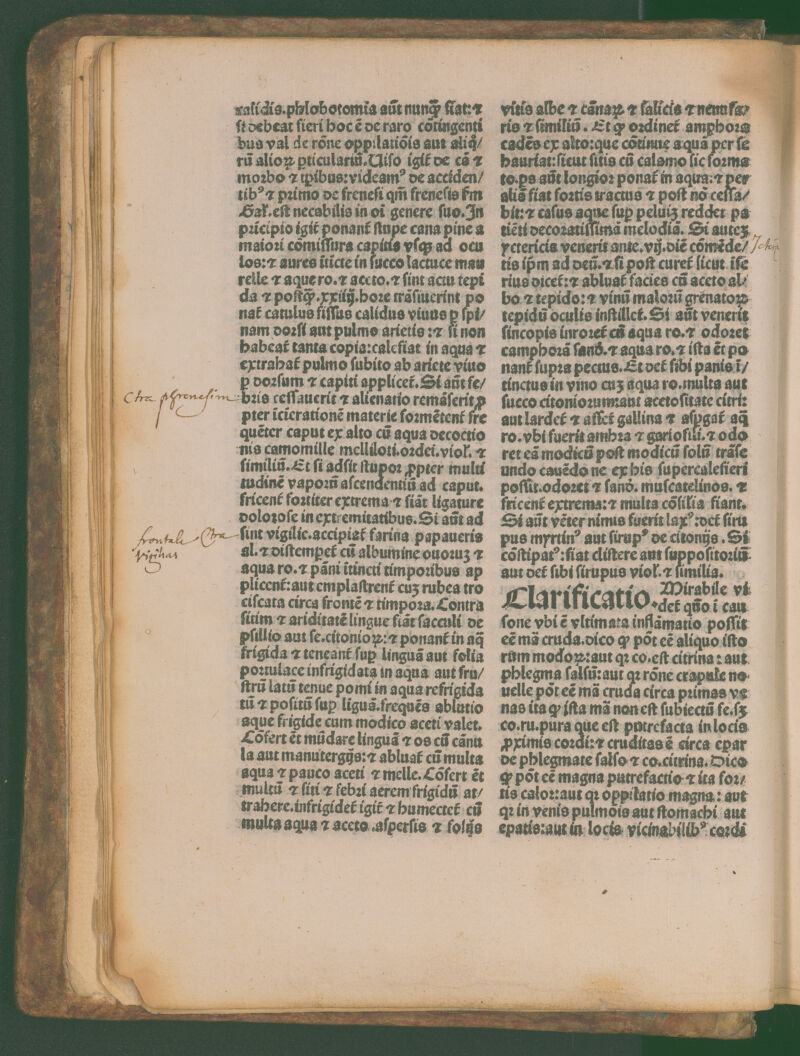 calidis.phlobotomia aūt nunq̄ȝ fiat:⁊
si debeat fieri hoc ē de raro cōtingenti
bus val de rōne oppilatiōis aut aliq̄/
rū alioꝝ p̱ticulariū. Uiso igit̄ de cā ⁊
morbo ⁊ videamꝰ de acciden/
tibꝰ ⁊ primo de frenesi qm̄ frenesis s̄m
Gal̄.est necabilis in oī genere suo. In
prīcipio igit̄ ponant̄ stupe cana pine a
maiori cōmissura capitis vsq̄ȝ ad ocu
los:⁊ aures ītīcte in succo lactuce mau
relle ⁊ aque ro.⁊ aceto.⁊ sint actu tepi
da ⁊ postq̄ȝ.xxiiij.hore trāsiuerint po
nat̄ catulus fissus calidus viuus p̱ spi/
nam dorsi aut pulmo arietis:⁊ si non
habeat̄ tanta copia:calefiat in aqua ⁊
extrahat̄ pulmo subito ab ariete viuo
p̱ dorsum ⁊ capiti applicet̄. Si aūt fe/
Ctra phrenesim
bris cessauerit ⁊ alienatio remāserit ꝓ
pter īcīcrationē materie formētent̄ fre
quēter caput ex alto cū aqua decoctio
nis camomille melliloti.ordei.viol̄. ⁊
similiū. Et si adsit stupor ꝓpter multi
tudinē vaporū ascendentiū ad caput.
fricent̄ fortiter extrema ⁊ fiāt ligature
dolorose in extremitatibus. Si aūt ad
frontale Ctra
vigilias
sint vigilie.accipiat̄ farina papaueris
al.⁊ distempet̄ cū albumine ouoruȝ ⁊
aqua ro.⁊ pāni ītincti timporibus ap
plicent̄:aut emplastrent̄ cuȝ rubea tro
ciscata circa frontē ⁊ timpora. Contra
sitim ⁊ ariditatē lingue fiāt sacculi de
psillio aut se.citonioꝝ:⁊ ponant̄ in aq̄
frigida ⁊ teneant̄ sup̱ linguā aut folia
portulace infrigidata in aqua aut fru/
strū latū tenue pomi in aqua refrigida
tū ⁊ positū sup̱ liguā.frequēs ablutio
aque frigide cum modico aceti valet.
Cōfert ēt mūdare linguā ⁊ os cū cānu
la aut manutergijs:⁊ abluat̄ cū multa
aqua ⁊ pauco aceti ⁊ melle. Cōfert ēt
multū ⁊ siti ⁊ febri aerem frigidū at/
trahere.infrigidet̄ igit̄ ⁊ humectet̄ cū
multa aqua ⁊ aceto.aspersis ⁊ folijs
vitis albe ⁊ cānaꝝ ⁊ salicis ⁊ nenufa/
ris ⁊ similiū. Et ꝙ ordinet̄ amphora
cadēs ex alto:que cōtinue aquā per se
hauriat:sicut sitis cū calamo sic forma
to.ps aūt longior ponat̄ in aqua:⁊ per
aliā fiat fortis tractus ⁊ post nō cessa/
bit:⁊ casus aque sup̱ peluiȝ reddet pa
tiēti decoratissimā melodiā. Si auteȝ
yctericis venerit ante.vij.diē cōmēde/
Icteri
tis ip̄m ad deū.⁊ si post curet̄ sicut īfe
rius dicet̄:⁊ abluat̄ facies cū aceto al/
bo ⁊ tepido:⁊ vinū malorū grēnatoꝝ
tepidū oculis instillet̄. Si aūt venerit
sincopis inroret̄ cū aqua ro.⁊ odoret
camphorā sand̄.⁊ aqua ro.⁊ ista ēt po
nant̄ supra pectus. Et det̄ sibi panis ī/
tinctus in vino cuȝ aqua ro.multa aut
succo citoniorum:aut acetositate citri:
aut lardet̄ ⁊ asset̄ gallina ⁊ asp̱gat̄ aq̄
ro.vbi fuerit ambra ⁊ gariofili.⁊ odo
ret eā modicū post modicū solū trāse
undo cauēdo ne ex his supercalefieri
possit.odoret ⁊ sand̄. muscatelinos. ⁊
fricent̄ extrema:⁊ multa cōsilia fiant.
Si aūt vēter nimis fuerit laxꝰ:det̄ siru
pus myrtinꝰ aut sirupꝰ de citonijs. Si
cōstipatꝰ:fiat clistere aut suppositoriū
aut det̄ sibi sirupus viol̄.⁊ similia.
Clarificatio. Mirabile vi
det̄ q̄ūo ī cau
sone vbi ē vltimata inflāmatio possit
eē mā cruda.dico ꝙ pōt eē aliquo isto
rum modoꝝ:aut qꝛ co.est citrina:aut
phlegma salsū:aut qꝛ rōne crapule no
uelle pōt eē mā cruda circa primas ve
nas ita ꝙ ista mā non est subiectū fe.sȝ
co.ru.pura que est putrefacta in locis
ꝓximis cordi:⁊ cruditas ē circa epar
de phlegmate salso ⁊ co.citrina. Dico
ꝙ pōt eē magna putrefactio ⁊ ita for/
tis calor:aut qꝛ oppilatio magna:aut
qꝛ in venis pulmōis aut stomachi aut
epatis:aut in locis vicinabilibꝰ cordi